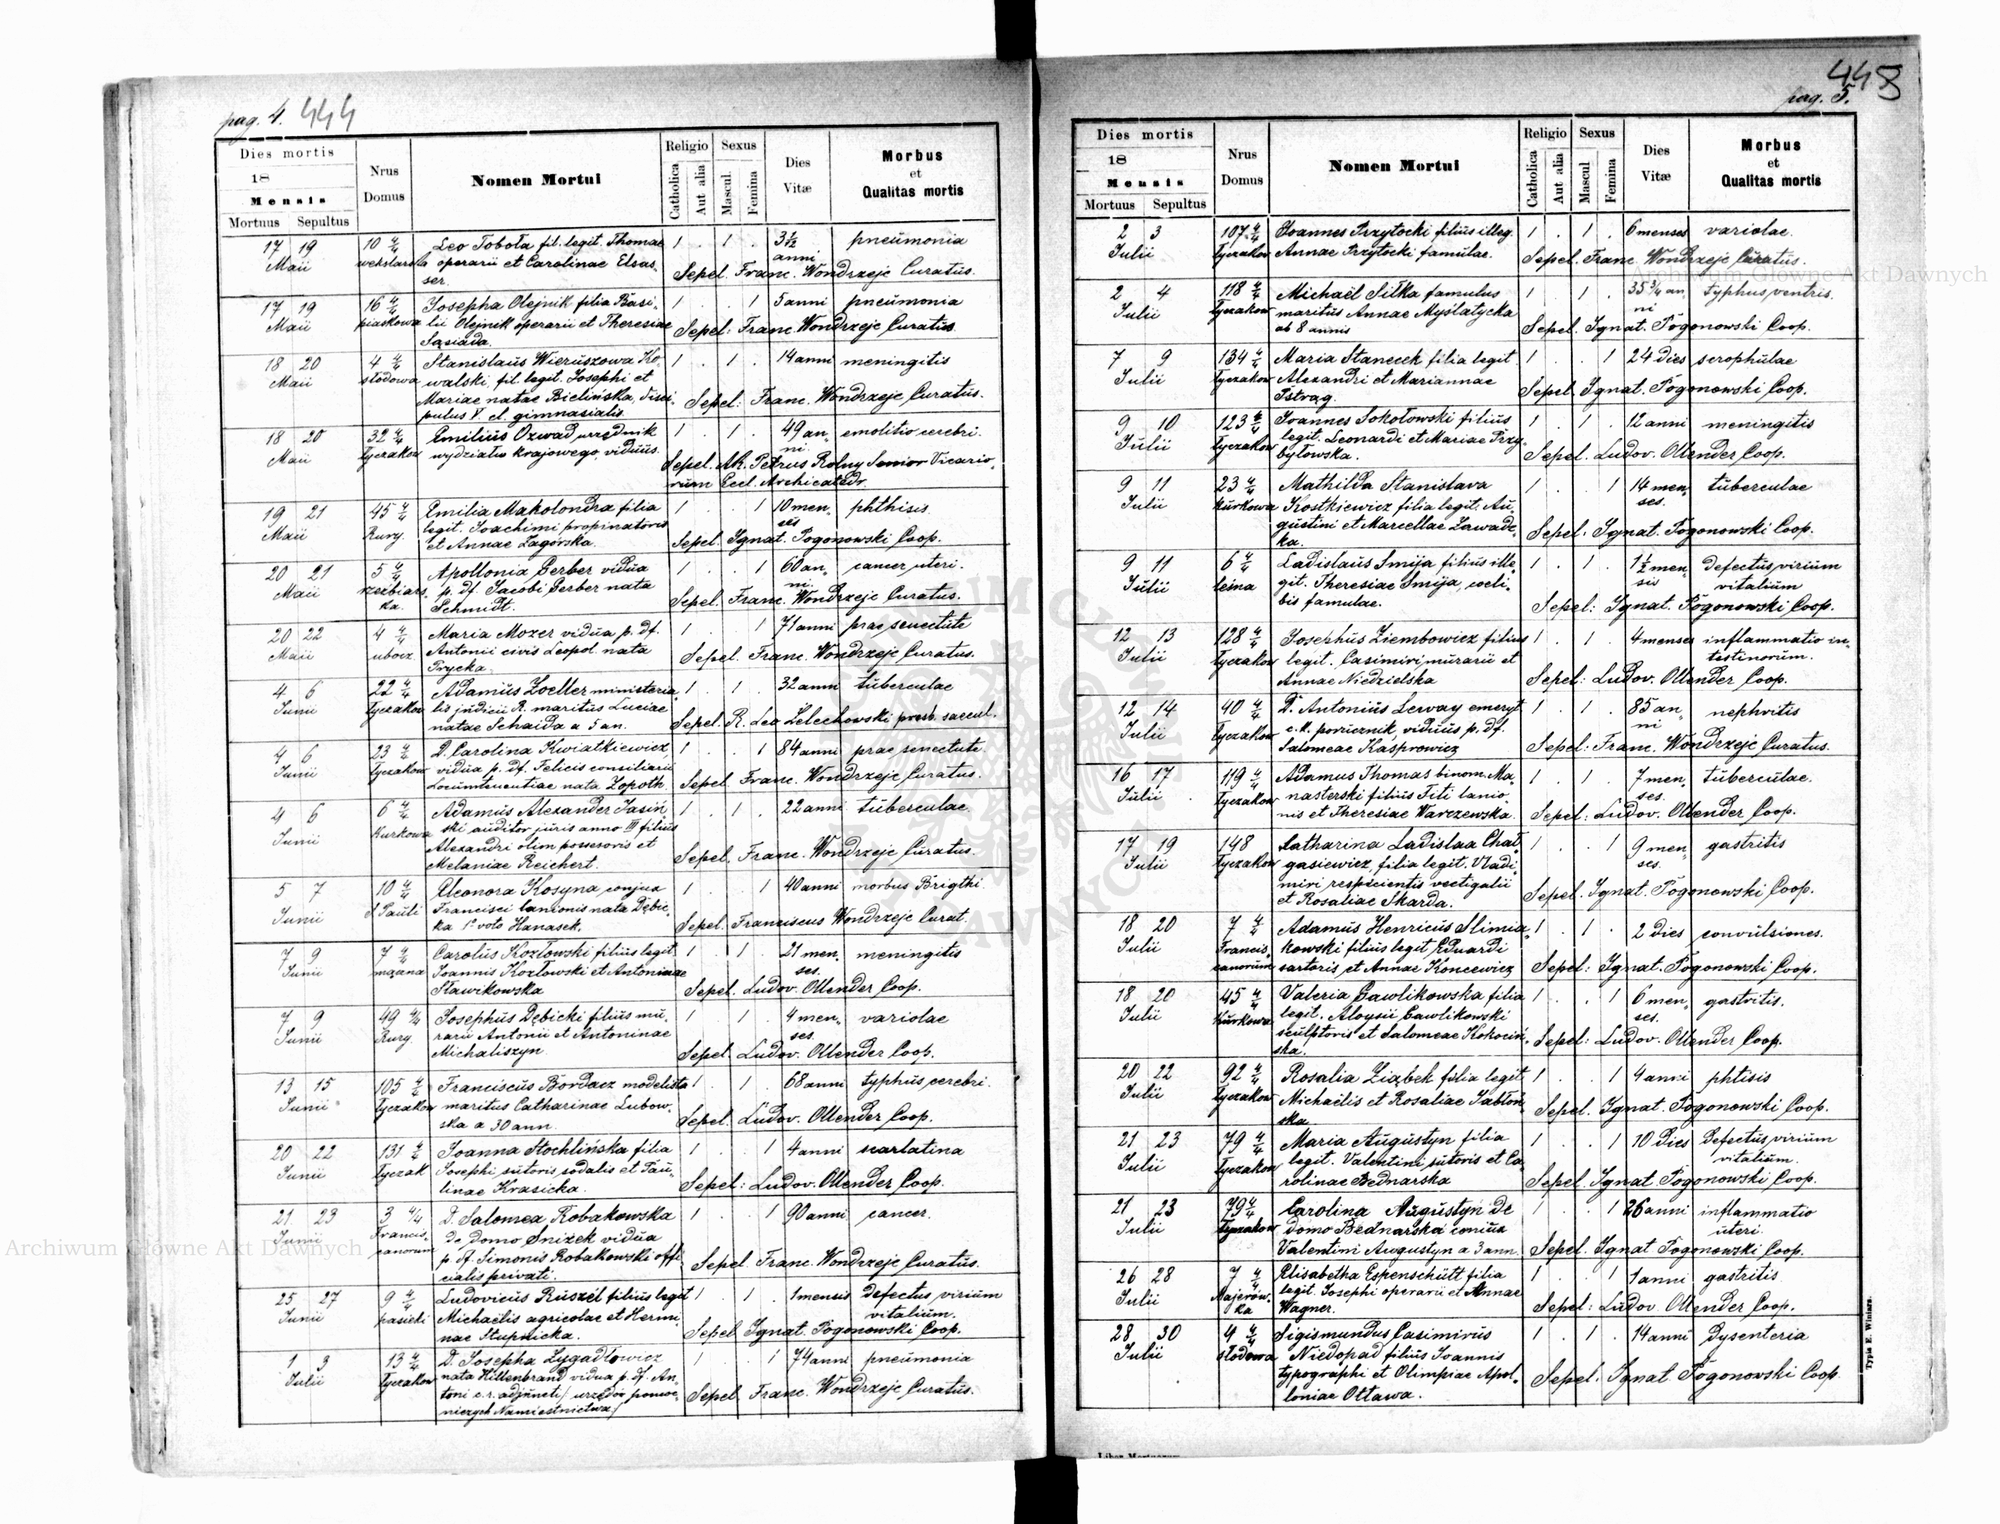 pag. 4. 444
Dies mortis
18
Mensis
Mortuus Sepultus
Nrus Domus
Nomen Mortui
Religio
Catholica
Aut alia
Sexus
Mascul.
Femina
Dies Vitæ
Morbus et Qualitas mortis
17 19 10 4/4 Leo Tobola fil. legit. Thomae 1 . 1 . 3 1/2 pneumonia
Maii operarii et Carolinae Elsas- anni
ser. Sepel. Franc. Wondrzeje Curatus.
17 19 16 4/4 Josepha Olejnik filia Basi- 1 . . 1 5 anni pneumonia
Maii piaskowa lii Olejnik operarii et Theresiae
Sasiada. Sepel: Franc. Wondrzeje Curatus.
18 20 4 4/4 Stanislaus Wieruszowa Ko- 1 . 1 . 14 anni meningitis
Maii słodowa walski, fil. legit. Josephi et
Mariae natae Bielińska, disci- Sepel: Franc. Wondrzeje Curatus.
pulus V. cl. gimnasialis.
18 20 32 4/4 Emilius Ozwad urzędnik 1 . 1 . 49 an- emolitio cerebri.
Maii Łyczakow wydziału krajowego, viduus. ni.
Sepel. Ak. Petrus Rolny Senior Vicario-
rum Eccl. Archicatedr.
19 21 45 4/4 Emilia Makolondra filia 1 . . 1 10 men- phthisis.
Maii Rury. legit. Joachimi propinatoris ses
et Annae Zagórska. Sepel. Ignat. Pogonowski Coop.
20 21 5 4/4 Apollonia Gerber vidua 1 . . 1 60 an- cancer uteri.
Maii rzeźbiars- p. df. Jacobi Gerber nata ni.
ka. Schmidt. Sepel. Franc. Wondrzeje Curatus.
20 22 4 4/4 Maria Mozer vidua p. df. 1 . . 1 71 anni prae senectute
Maii ubocz Antonii civis Leopol. nata
Prycka. Sepel. Franc. Wondrzeje Curatus.
4 6 22 4/4 Adamus Zoeller ministeria- 1 . 1 . 32 anni tuberculae
Junii Łyczakow lis judicii R. maritus Luciae
natae Schaida a 5 an. Sepel. R. Leo Zelechowski presb. saecul.
4 6 23 4/4 D. Carolina Kwiatkiewicz 1 . . 1 84 anni prae senectute.
Junii Łyczakow vidua p. df. Felicis consiliarii
Locumtenentiae nata Zopoth. Sepel. Franc. Wondrzeje Curatus.
4 6 6 4/4 Adamus Alexander Jasiń- 1 . 1 . 22 anni tuberculae.
Junii Kurkowa ski auditor juris anno III filius
Alexandri olim possesoris et
Melaniae Reichert. Sepel. Franc. Wondrzeje Curatus.
5 7 10 4/4 Eleonora Kosyna, conjux 1 . . 1 40 anni morbus Brigthi
Junii S. Pauli Francisci lanionis nata Dębic-
ka 1o voto Hanasek. Sepel. Franciscus Wondrzeje Curat.
7 9 7 4/4 Carolus Kozłowski filius legit. 1 . 1 . 21 men- meningitis
Junii Joannis Kozłowski et Antoninae ses.
Sławikowska Sepel. Ludov. Ollender Coop.
7 9 49 4/4 Josephus Dębicki filius mu- 1 . 1 . 4 men- variolae
Junii Rury. rarii Antonii et Antoninae ses.
Michaliszyn. Sepel. Ludov. Ollender Coop.
13 15 105 4/4 Franciscus Bordacz modelista 1 . 1 . 68 anni typhus cerebri.
Junii Łyczakow maritus Catharinae Lubow-
ska a 30 ann. Sepel. Ludov. Ollender Coop.
20 22 131 4/4 Joanna Stochlińska filia 1 . . 1 4 anni scarlatina
Junii Łyczak. Josephi sutoris, sodalis et Pau-
linae Krasicka. Sepel: Ludov. Ollender Coop.
21 23 3 4/4 D. Salomea Robakowska 1 . . 1 90 anni cancer.
Junii Francis- de domo Snizek vidua
canorum p. df. Simonis Robakowski offi-
cialis privati. Sepel. Franc. Wondrzeje Curatus.
25 27 9 4/4 Ludovicus Ruszel filius legit 1 . 1 . 1 mensis defectus virium
Junii pasieki Michaelis agricolae et Hermi- vitalium.
nae Stupnicka. Sepel Ignat. Pogonowski Coop.
1 3 13 4/4 D. Josepha Zygadłowicz 1 . . 1 74 anni pneumonia
Julii Łyczakow nata Hiltenbrand vidua p. df. An-
toni c. r. adjuncti/ urzędów pomoc- Sepel. Franc. Wondrzeje Curatus.
niczych Namiestnictwa/
pag. 5.
Dies mortis
18
Mensis
Mortuus Sepultus
Nrus Domus
Nomen Mortui
Religio
Catholica
Aut alia
Sexus
Mascul.
Femina
Dies Vitæ
Morbus et Qualitas mortis
2 3 107 4/4 Joannes Przytocki filius illeg. 1 . 1 . 6 menses variolae.
Julii Łyczakow Annae Przytocki famulae. Sepel. Franc. Wondrzeje Curatus.
2 4 118 4/4 Michaël Silka famulus 1 . 1 . 35 3/4 an- typhus ventris.
Julii Łyczakow maritus Annae Myślatycka ni
ab 8 annis Sepel. Ignat. Pogonowski Coop.
7 9 134 4/4 Maria Stanecek filia legit 1 . . 1 24 dies scrophulae
Julii Łyczakow Alexandri et Mariannae
Pstrag. Sepel. Ignat. Pogonowski Coop.
9 10 123 4/4 Joannes Sokołowski filius 1 . 1 . 12 anni meningitis
Julii Łyczakow legit. Leonardi et Mariae Przy-
byłowska. Sepel. Ludov. Ollender Coop.
9 11 23 4/4 Mathilda Stanislava 1 . . 1 14 men- tuberculae
Julii Kurkowa Kostkiewicz filia legit. Au- ses.
gustini et Marcellae Zawadz- Sepel. Ignat. Pogonowski Coop.
ka.
9 11 6 4/4 Ladislaus Smija filius ille- 1 . 1 . 1 1/2 men- defectus virium
Julii leśna git. Theresiae Smija, coeli- sis vitalium
bis famulae. Sepel: Ignat. Pogonowski Coop.
12 13 128 4/4 Josephus Ziembowicz filius 1 . 1 . 4 menses inflammatio in-
Julii Łyczakow legit. Casimiri murarii et testinorum.
Annae Niedzielska Sepel: Ludov. Ollender Coop.
12 14 40 4/4 D. Antonius Lerway emeryt 1 . 1 . 85 an- nephritis
Julii Łyczakow c.k. porucznik, viduus p. df. ni
Salomeae Kasprowicz Sepel: Franc. Wondrzeje Curatus.
16 17 119 4/4 Adamus Thomas binom. Ma- 1 . 1 . 7 men- tuberculae.
Julii Łyczakow nasterski filius Titi lanio- ses.
nis et Theresiae Warczewska. Sepel: Ludov. Ollender Coop.
17 19 148 Catharina Ladislaa Chał- 1 . . 1 9 men- gastritis
Julii Łyczakow gasiewicz, filia legit. Vladi- ses.
miri respicientis vectigalii
et Rosaliae Skarda. Sepel. Ignat. Pogonowski Coop.
18 20 7 4/4 Adamus Henricus Slimia- 1 . 1 . 2 dies convulsiones.
Julii Francis- kowski filius legit, Eduardi
canorum sartoris, et Annae Koncewicz Sepel: Ignat. Pogonowski Coop.
18 20 45 4/4 Valeria Gawlikowska filia 1 . . 1 6 men- gastritis.
Julii Kurkowa legit. Aloysii Gawlikowski ses.
sculptoris et Salomeae Kokociń- Sepel: Ludov. Ollender Coop.
ska.
20 22 92 4/4 Rosalia Ziąbek filia legit 1 . . 1 4 anni phtisis
Julii Łyczakow Michaëlis et Rosaliae Jabłoń- Sepel. Ignat. Pogonowski Coop.
ska.
21 23 79 4/4 Maria Augustyn filia 1 . . 1 10 dies defectus virium
Julii Łyczakow legit. Valentini, sutoris et Ca- vitalium.
rolinae Bednarska Sepel. Ignat. Pogonowski Coop.
21 23 79 4/4 Carolina Augustyn de 1 . . 1 26 anni inflammatio
Julii Łyczakow domo Bednarska coniux uteri.
Valentini Augustyn a 3 ann. Sepel. Ignat Pogonowski Coop.
26 28 7 4/4 Elisabetha Espenschütt filia 1 . . 1 1 anni gastritis
Julii Majerów- legit. Josephi operarii et Annae
ka Wagner. Sepel: Ludov. Ollender Coop.
28 30 4 4/4 Sigismundus Casimirus 1 . 1 . 14 anni Dysenteria
Julii słodowa Niedopad filius Joannis
typographi et Olimpiae Apol- Sepel. Ignat Pogonowski Coop.
loniae Ottawa.
Typis E. Winiarz.
Archiwum Główne Akt Dawnych
Archiwum Główne Akt Dawnych